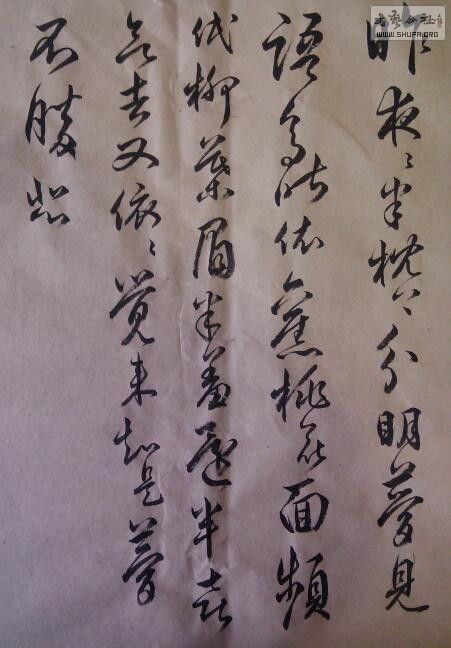 昨夜〻半枕上分明夢見
語多時依舊桃花面頻
低柳葉眉半羞還半喜
欲去又依〻覺来知是夢
不勝悲
书艺公社
WWW.SHUFA.ORG